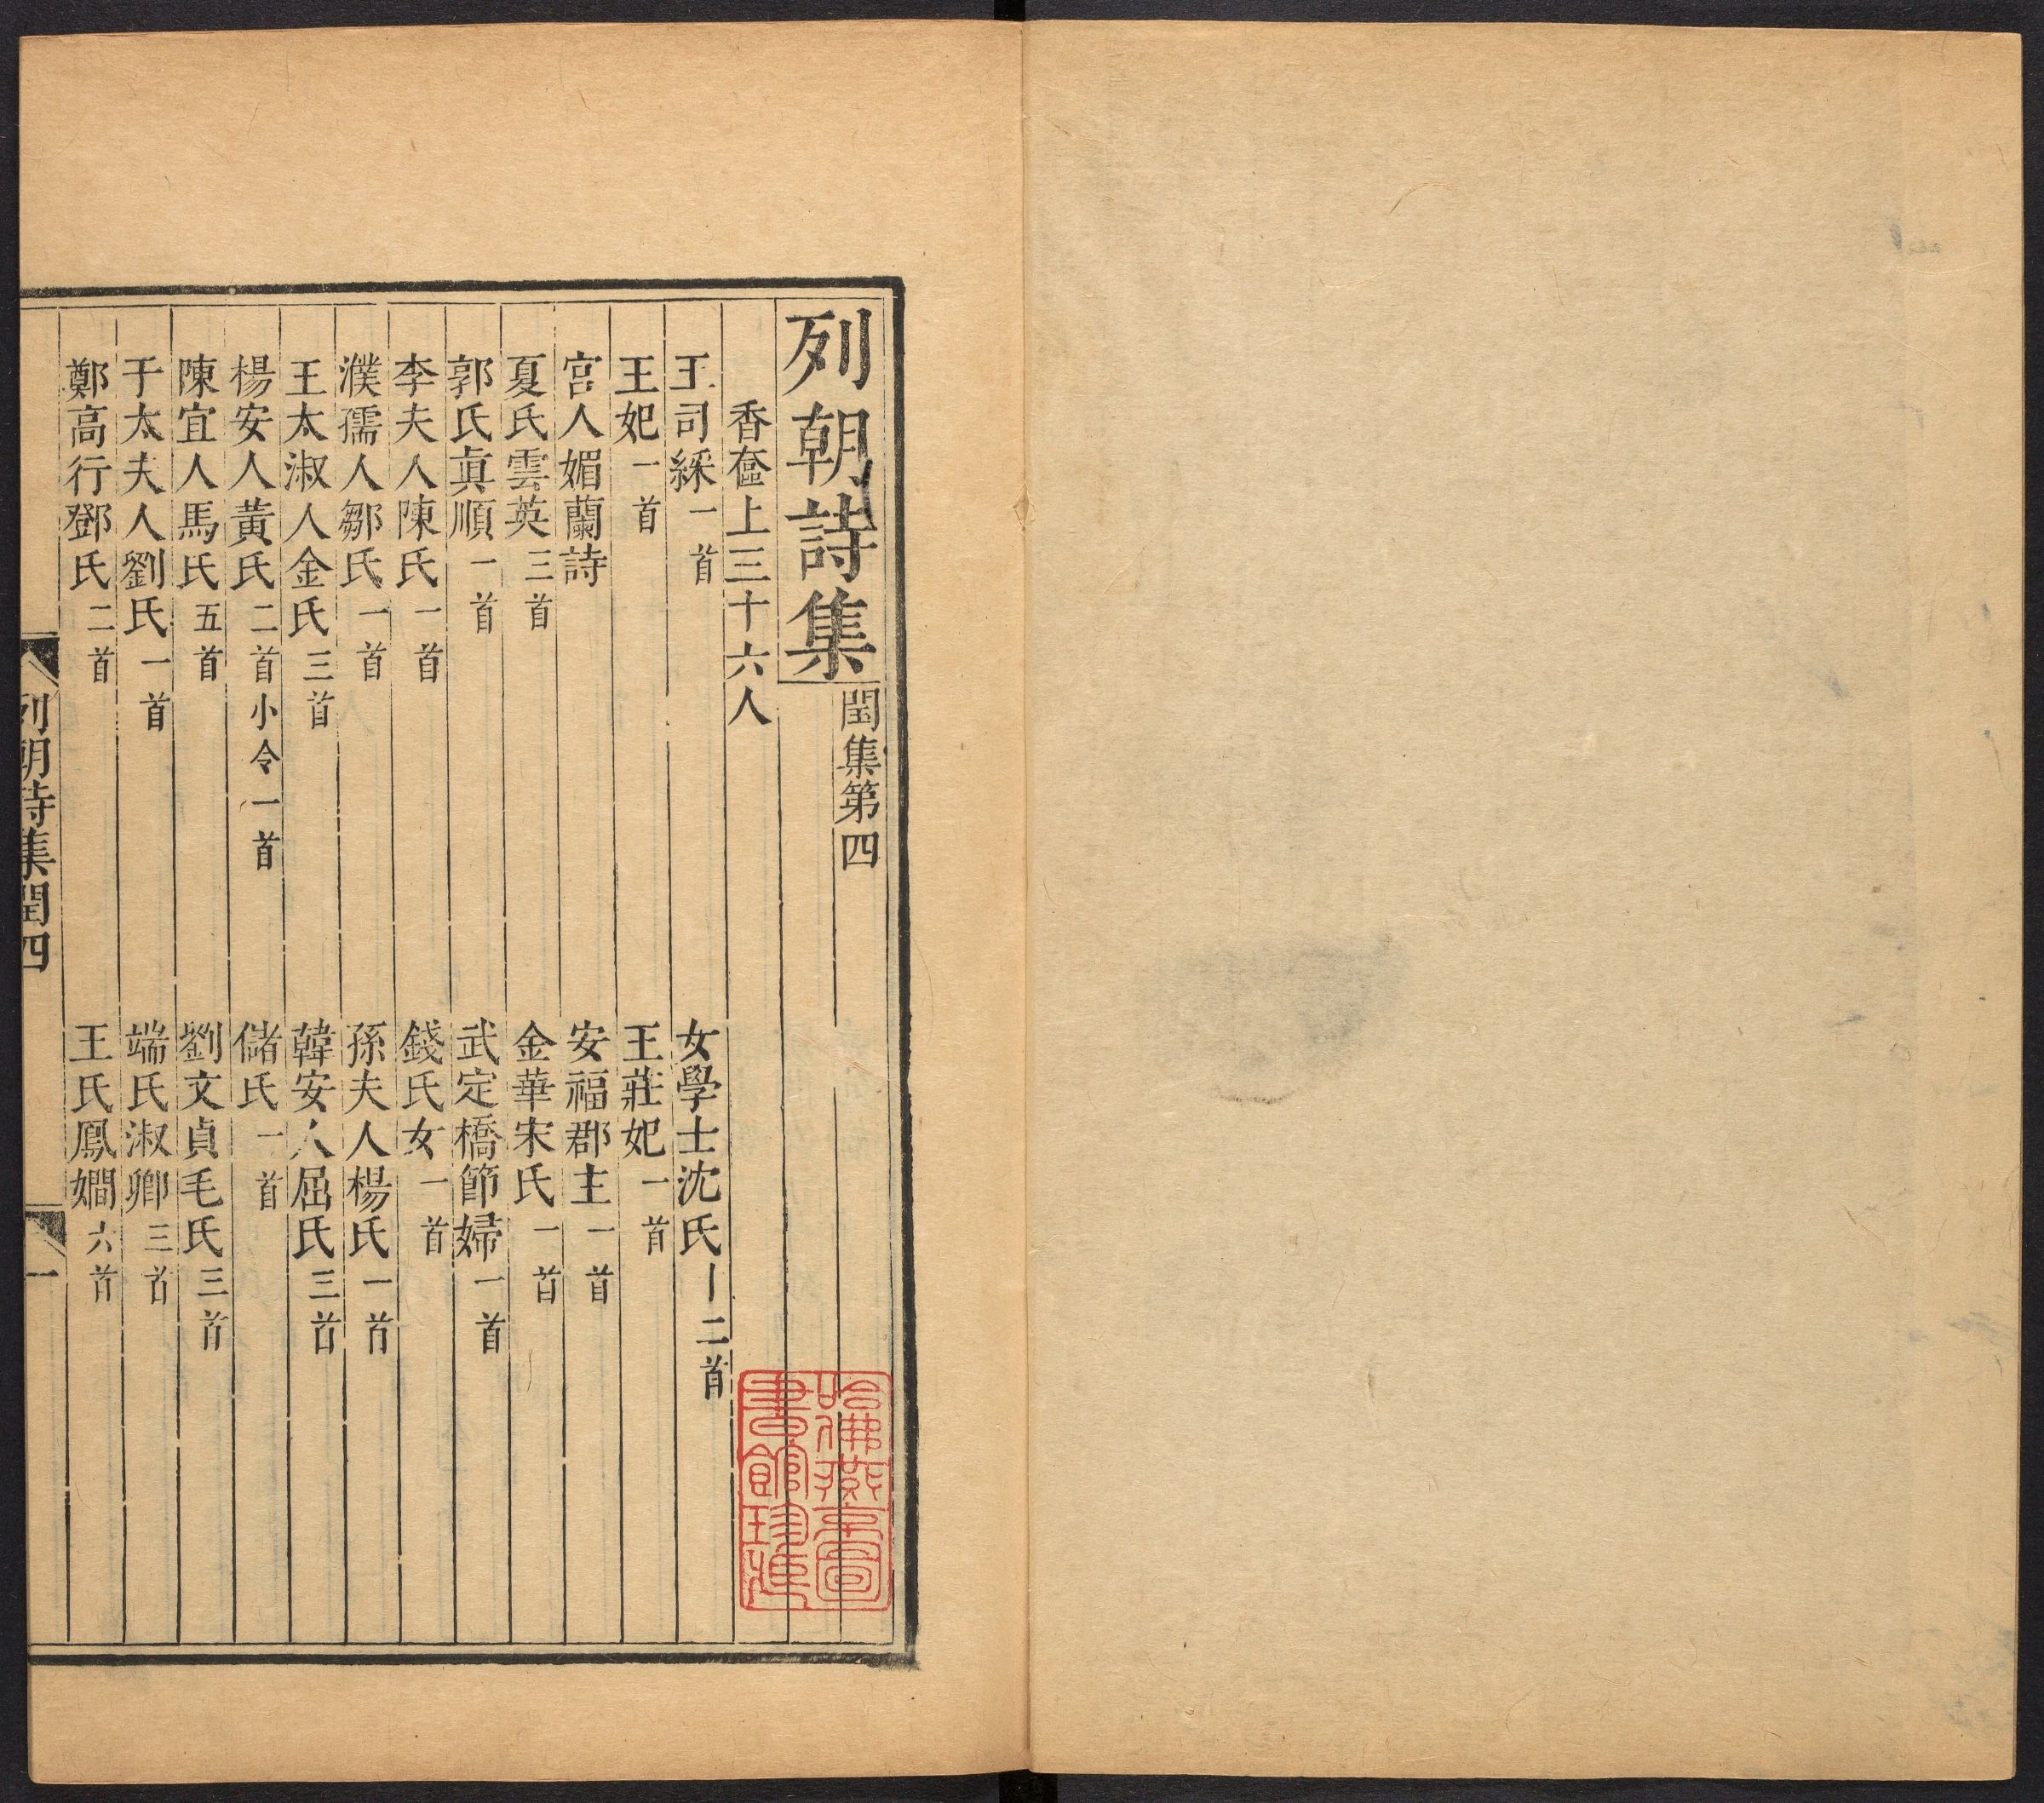 列朝詩集 閏集第四
香奩上三十六人
王司綵一首 女學士沈氏一二首
王妃一首 王莊妃一首
宮人媚蘭詩 安福郡主一首
夏氏雲英三首 金華宋氏一首
郭氏眞順一首 武定橋節婦一首
李夫人陳氏一首 錢氏女一首
濮孺人鄒氏一首 孫夫人楊氏一首
王太淑人金氏三首 韓安人屈氏三首
楊安人黃氏二首小令一首 儲氏一首
陳宜人馬氏五首 劉文貞毛氏三首
于太夫人劉氏一首 端氏淑卿三首
鄭高行鄧氏二首 王氏鳳嫺六首
列朝詩集閏四 一
哈佛燕京圖
書館珍藏